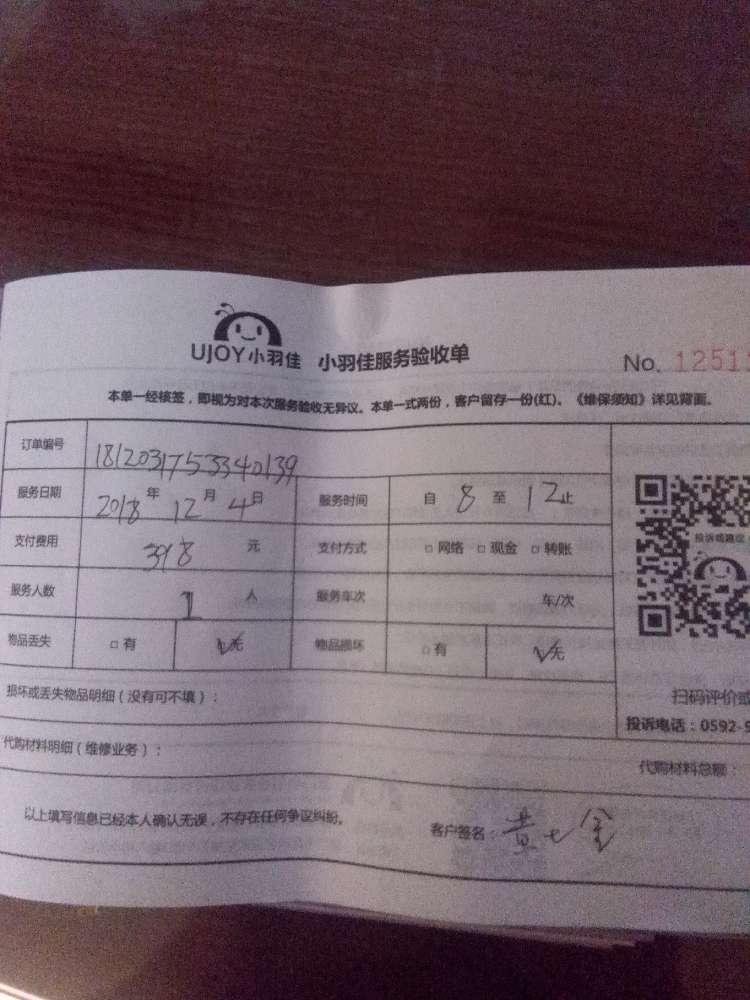 UJOY小羽佳 小羽佳服务验收单
No. 1251
本单一经核签，即视为对本次服务验收无异议。本单一式两份，客户留存一份(红)、《维保须知》详见背面。
订单编号 1812031753340139
服务日期 2018年12月4日 服务时间 自8至12止
支付费用 398元 支付方式 □网络 □现金 □转账
服务人数 1人 服务车次 车/次
物品丢失 □有 ☑无 物品损坏 □有 ☑无
损坏或丢失物品明细（没有可不填）：
扫码评价或
投诉电话：0592-9
代购材料明细（维修业务）：
代购材料总额：
以上填写信息已经本人确认无误，不存在任何争议纠纷。 客户签名：黄七金